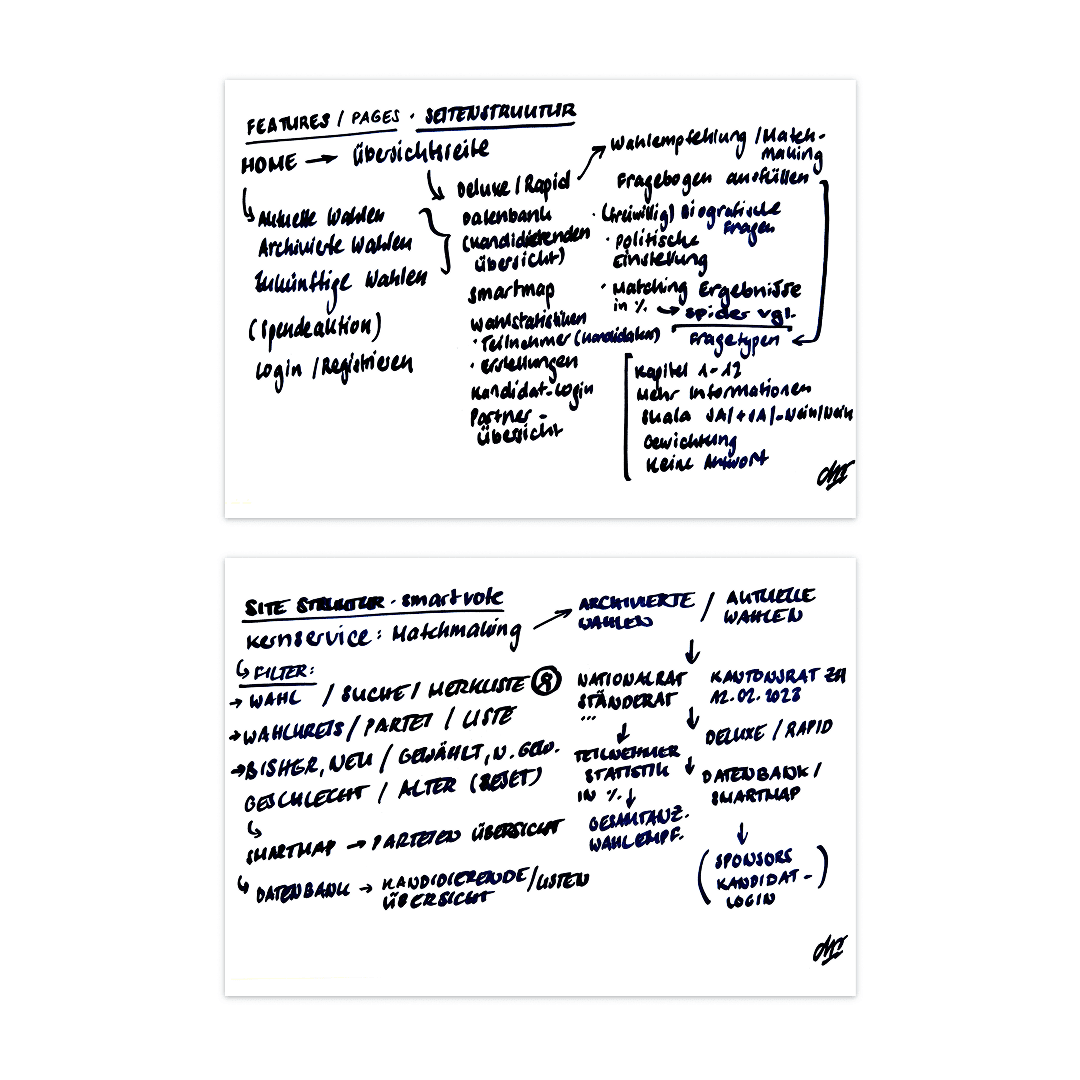 FEATURES / PAGES · SEITENSTRUKTUR
HOME → Übersichtsseite
Aktuelle Wahlen
Archivierte Wahlen
Zukünftige Wahlen
(Spendeaktion)
Login / Registrieren
Deluxe / Rapid
Datenbank
(Kandidierenden
übersicht)
Smartmap
Wahlstatistiken
· Teilnehmer (Kandidaten)
· Erstellungen
Kandidat-Login
Partner-
Übersicht
→ Wahlempfehlung / Match-
making
Fragebogen ausfüllen
· (freiwillig) Biografische
Fragen
· Politische
Einstellung
· Matching Ergebnisse
in % → spider vgl.
Fragetypen
Kapitel 1-12
Mehr Informationen
Skala JA/+JA/-Nein/Nein
Gewichtung
Keine Antwort
SITE STRUKTUR · smartvote
Kernservice: Matchmaking
FILTER:
→ WAHL / SUCHE / MERKLISTE
→ WAHLKREIS / PARTEI / LISTE
→ BISHER, NEU / GEWÄHLT, N. GEW.
GESCHLECHT / ALTER (RESET)
SMARTMAP → PARTEIEN ÜBERSICHT
DATENBANK → KANDIDIERENDE / LISTEN
ÜBERSICHT
→ ARCHIVIERTE / AKTUELLE
WAHLEN WAHLEN
NATIONALRAT
STÄNDERAT
...
TEILNEHMER
STATISTIK
IN %
GESAMTANZ.
WAHLEMPF.
KANTONSRAT ZH
12.02.2023
DELUXE / RAPID
DATENBANK /
SMARTMAP
(SPONSORS
KANDIDAT-
LOGIN)